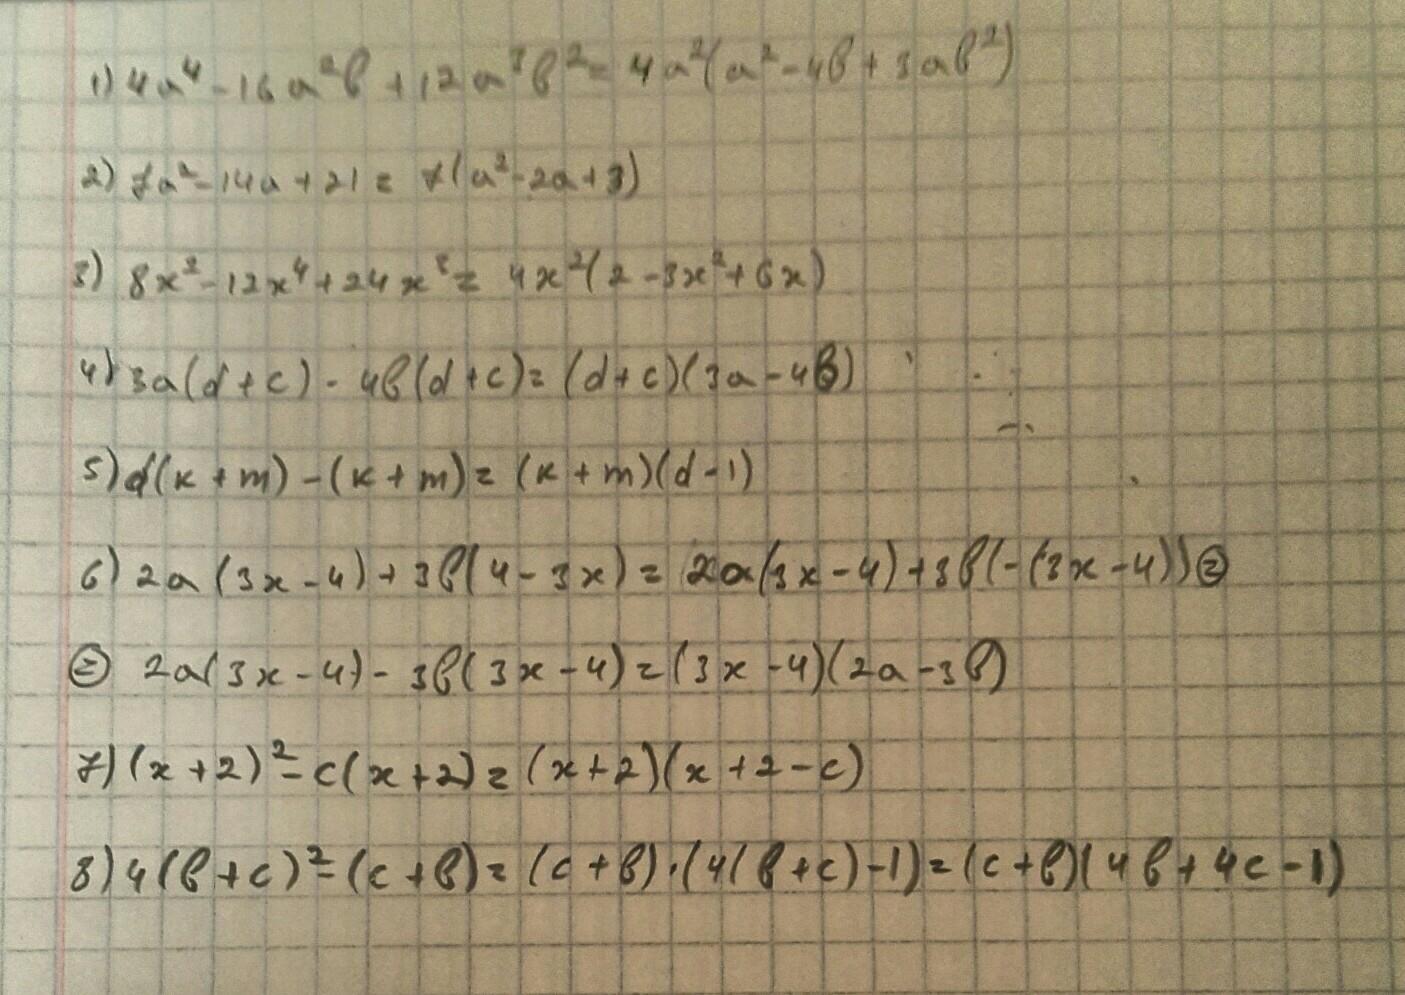 1) 4a⁴ - 16a²b + 12a³b² = 4a²(a² - 4b + 3ab²)
2) 7a² - 14a + 21 = 7(a² - 2a + 3)
3) 8x² - 12x⁴ + 24x³ = 4x²(2 - 3x² + 6x)
4) 3a(d + c) - 4b(d + c) = (d + c)(3a - 4b)
5) d(к + m) - (к + m) = (к + m)(d - 1)
6) 2a(3x - 4) + 3b(4 - 3x) = 2a(3x - 4) + 3b(-(3x - 4)) ⊜
⊜ 2a(3x - 4) - 3b(3x - 4) = (3x - 4)(2a - 3b)
7) (x + 2)² - c(x + 2) = (x + 2)(x + 2 - c)
8) 4(b + c)² - (c + b) = (c + b)·(4(b + c) - 1) = (c + b)(4b + 4c - 1)